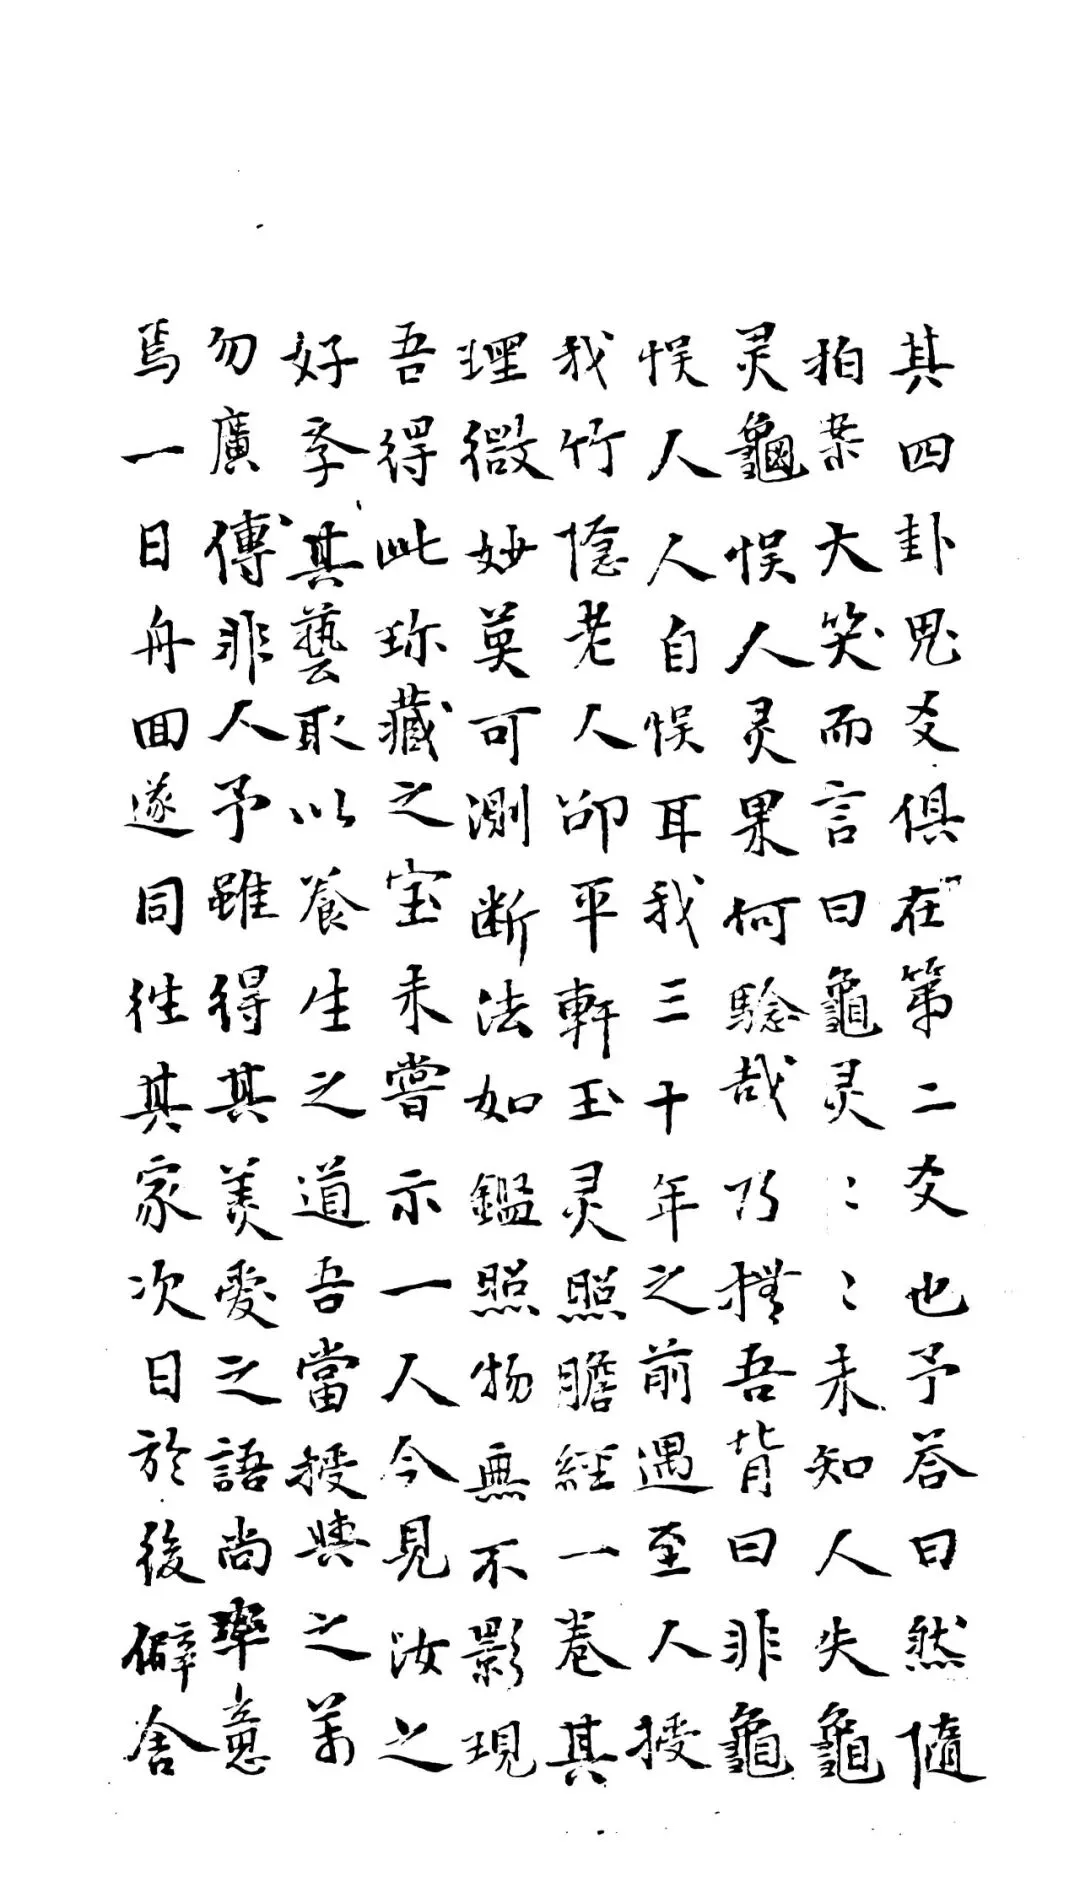 其四卦鬼爻俱在第二爻也予答曰然隨
拍案大笑而言曰龜灵〻〻未知人失龜
灵龜悮人灵果何驗哉乃撫吾背曰非龜
悮人人自悮耳我三十年之前遇至人授
我竹隱老人卲平軒玉灵照膽經一卷其
理微妙莫可測断法如鑑照物無不影現
吾得此珎藏之宝未嘗示一人今見汝之
好季其藝取以養生之道吾當授與之萬
勿廣傳非人予雖得其美愛之語尚率意
焉一日舟回遂同徃其家次日於後僻舍